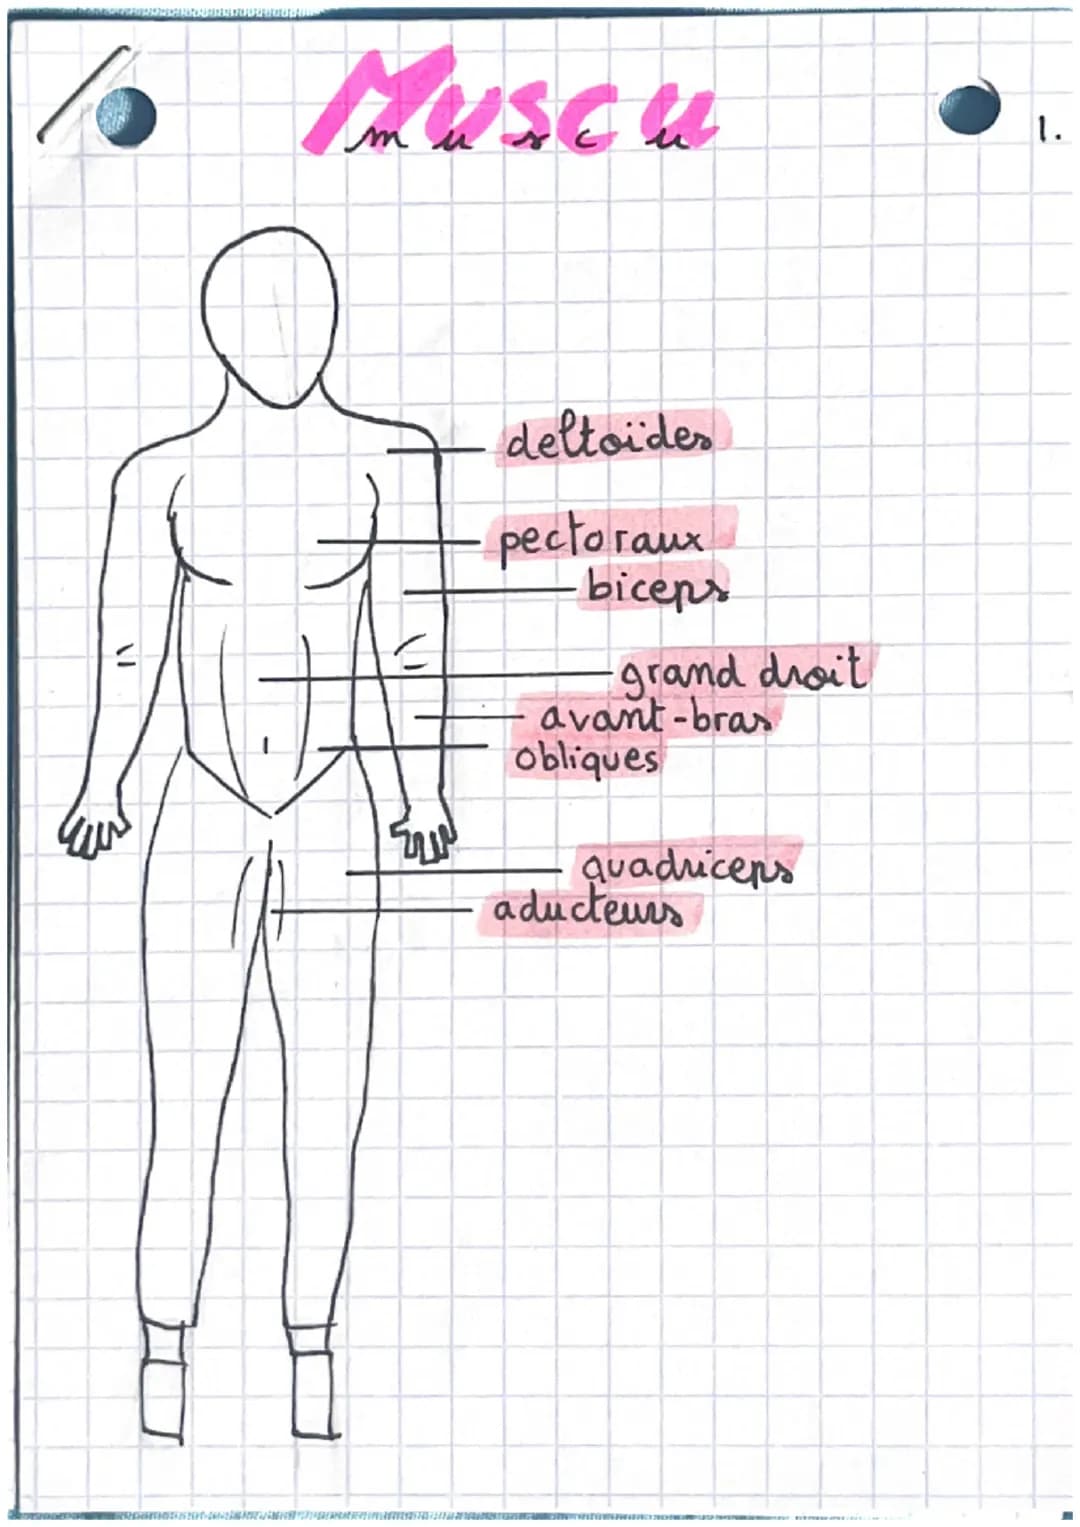 Muscu
muscu
1.
deltoïdes
pectoraux
biceps
grand droit
avant-bras
obliques
quadriceps
aducteurs